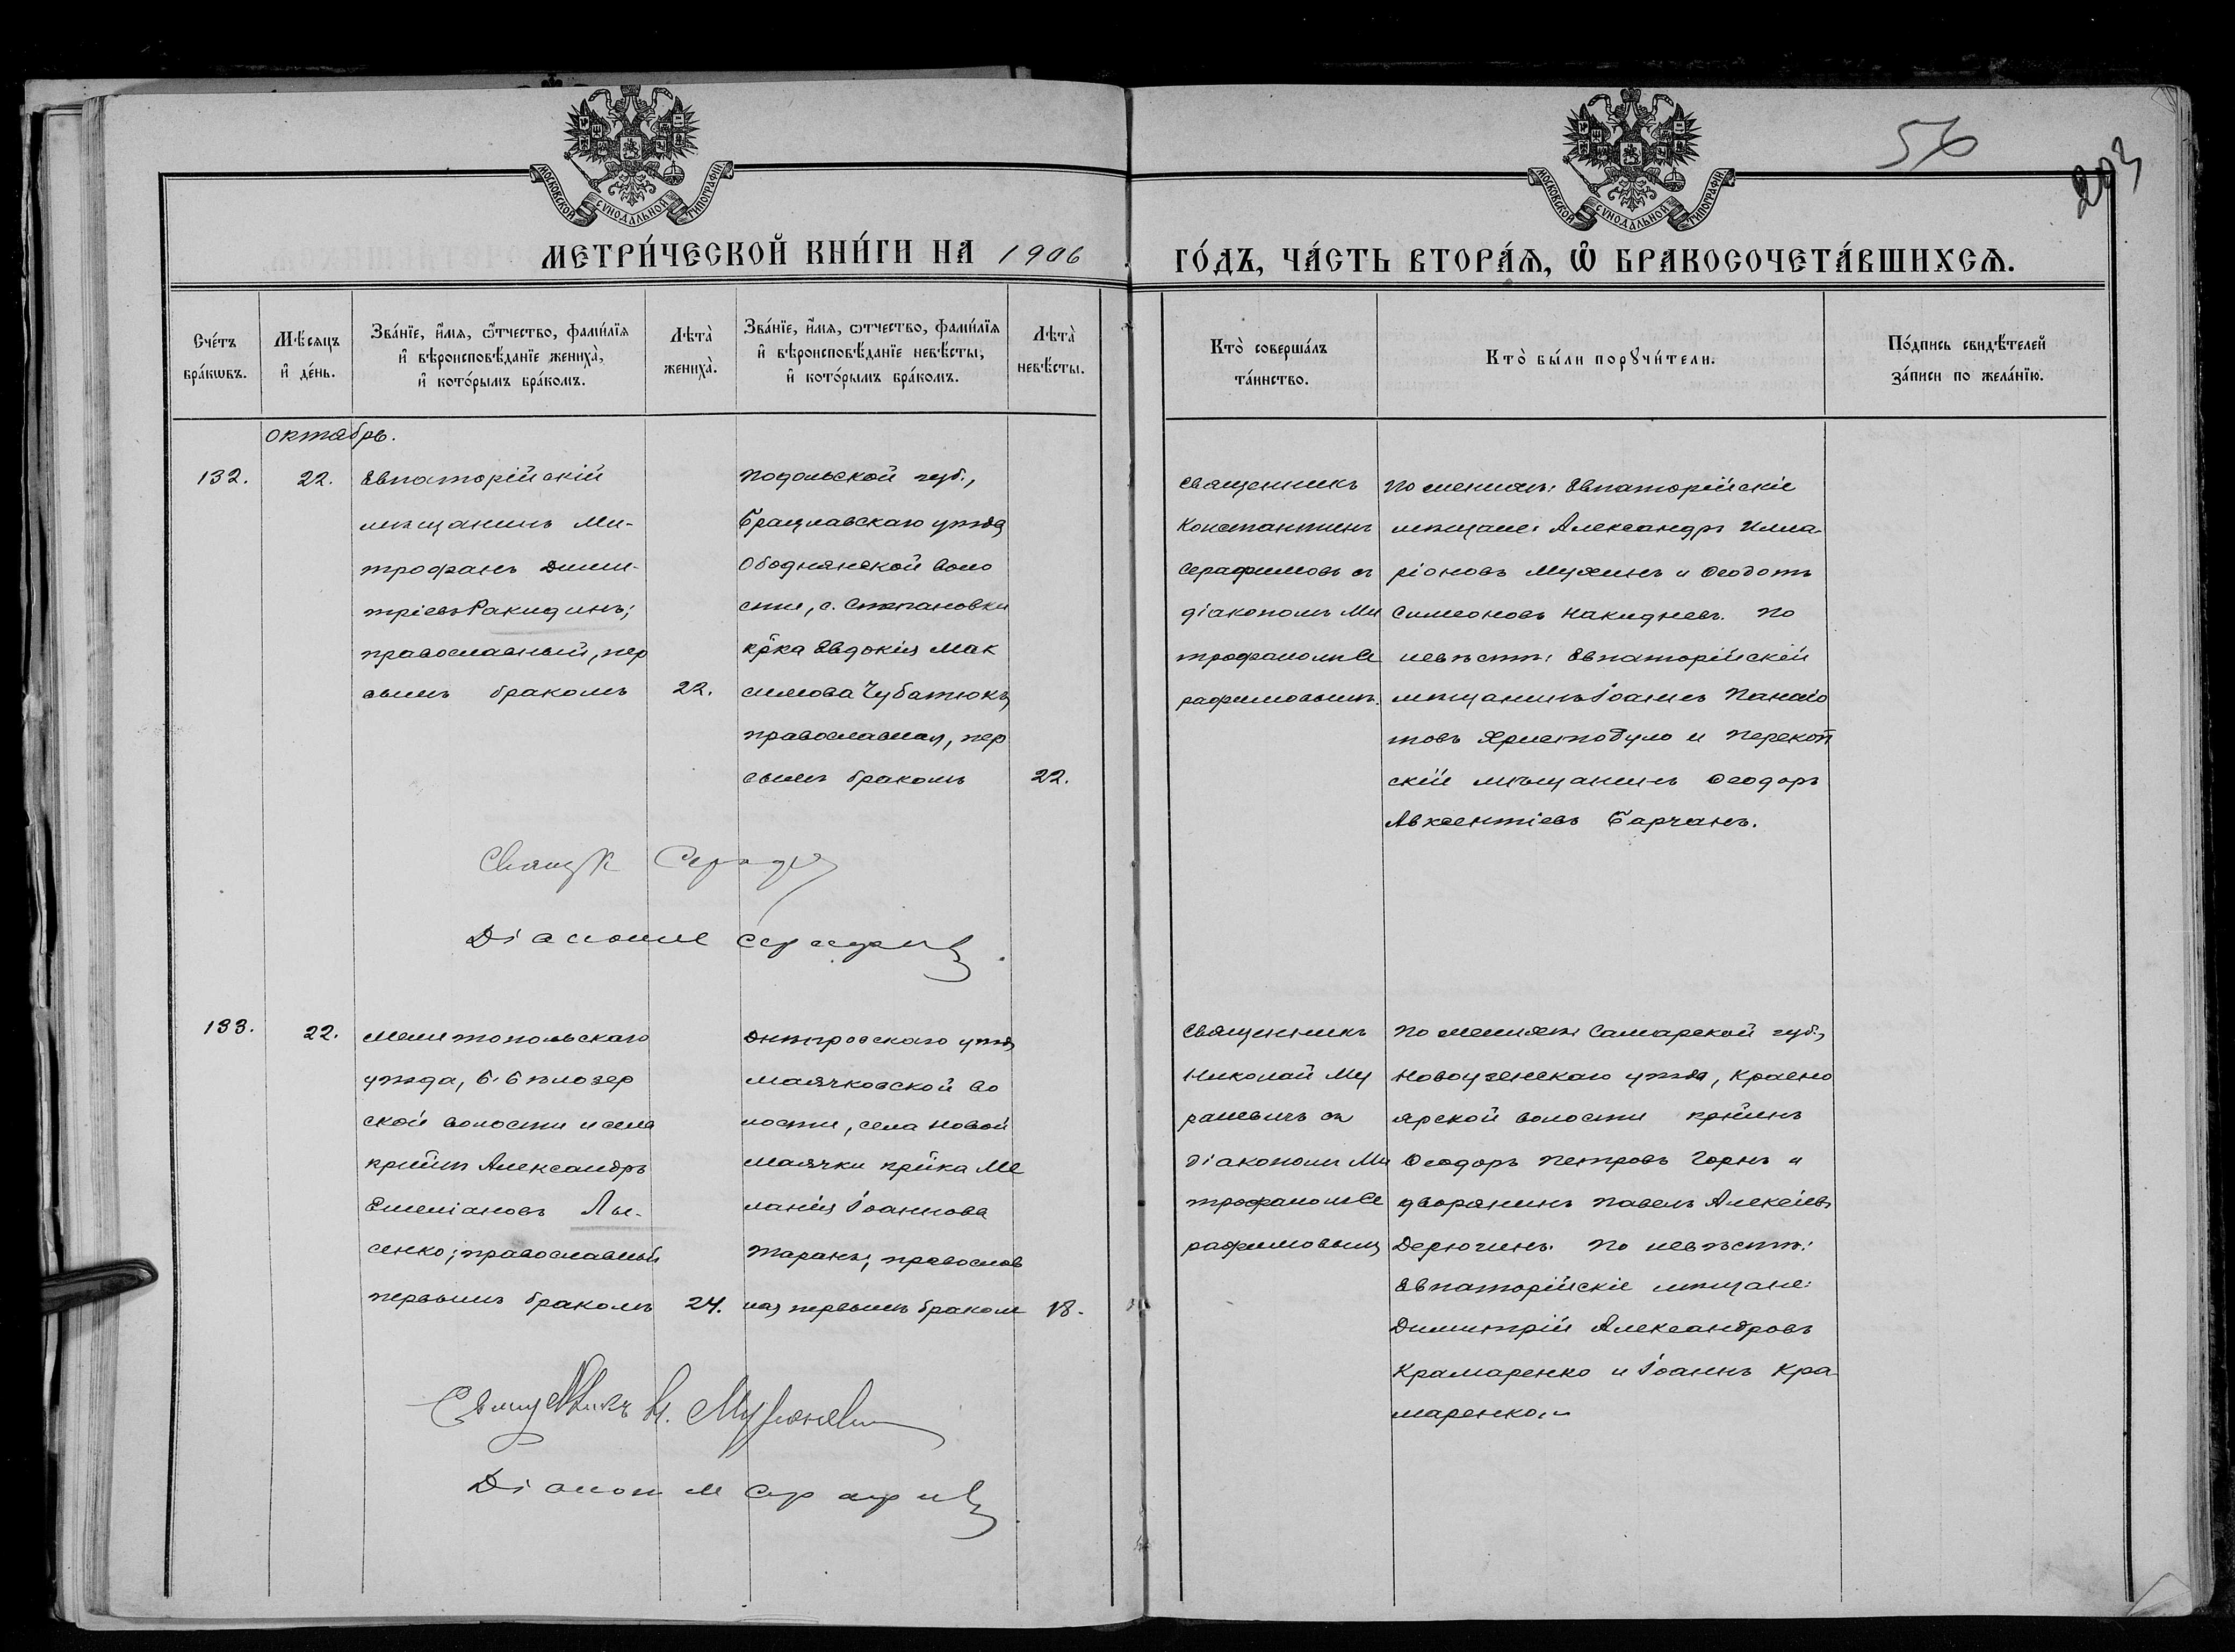 56
203
МОСКОВСКОЙ СѴНОДАЛЬНОЙ ТИПОГРАФІИ
МОСКОВСКОЙ СѴНОДАЛЬНОЙ ТИПОГРАФІИ
МЕТРИ́ЧЕСКОЙ КНИ́ГИ НА 1906
ГО́ДЪ, ЧА́СТЬ ВТОРА́Ѧ, Ѽ БРАКОСОЧЕТА́ВШИХСѦ.
Сче́тъ
бра́кѡвъ.
Мѣ́сяцъ
и҆ де́нь.
Зва́нїе, и҆́мя, ѻ҆́тчество, фами́лїя
и҆ вѣроисповѣ́данїе жениха̀,
и҆ кото́рымъ бра́комъ.
Лѣта̀
жениха̀.
Зва́нїе, и҆́мя, ѻтчество, фами́лїя
и҆ вѣроисповѣ́данїе невѣ́сты,
и҆ кото́рымъ бра́комъ.
Лѣта̀
невѣ́сты.
Кто̀ соверша́лъ
та́инство.
Кто̀ бы́ли порꙋчи́тели.
По́дпись свидѣ́телей
за́писи по жела́нїю.
октябрь.
132.
22.
Евпаторійскій
мѣщанинъ Ми-
трофанъ Дими-
тріевъ Ракидинъ;
православный, пер
вымъ бракомъ
22.
Подольской губ.,
Брацлавскаго уѣзда
Ободнянской воло
сти, с. Степановки
кр̃ка Евдокія Мак
симова Чубатюкъ,
православная, пер
вымъ бракомъ
22.
Священникъ
Константинъ
Серафимовъ съ
діакономъ Ми
трофаномъ Се
рафимовымъ.
По женихѣ: Евпаторійскіе
мѣщане: Александръ Илла-
ріоновъ Мухинъ и Ѳеодотъ
Симеоновъ Накидневъ. По
невѣстѣ: Евпаторійскій
мѣщанинъ Іоаннъ Панаіо
товъ Христодуло и Перекоп
скій мѣщанинъ Ѳеодоръ
Авксентіевъ Барчанъ.
133.
22.
Мелитопольскаго
уѣзда, Б. Бѣлозер
ской волости и села
кр̃нинъ Александръ
Емеліановъ Лы-
сенко; православный
первымъ бракомъ
24.
Днѣпровскаго уѣзд.
Маячковской во
лости, села Новой
Маячки кр̃нка Ме
ланія Іоаннова
Таранъ; православ
ная первымъ бракомъ
18.
Священникъ
Николай Му
раневичъ съ
діакономъ Ми
трофаномъ Се
рафимовымъ
По женихѣ: Самарской губ.,
Новоузенскаго уѣзда, Красно
ярской волости кр̃нинъ
Ѳеодоръ Петровъ Горнъ и
дворянинъ Павелъ Алексіевъ
Дерюгинъ. По невѣстѣ:
Евпаторійскіе мѣщане:
Димитрій Александровъ
Крамаренко и Іоаннъ Кра-
маренко.
Священникъ Н. Мураневич